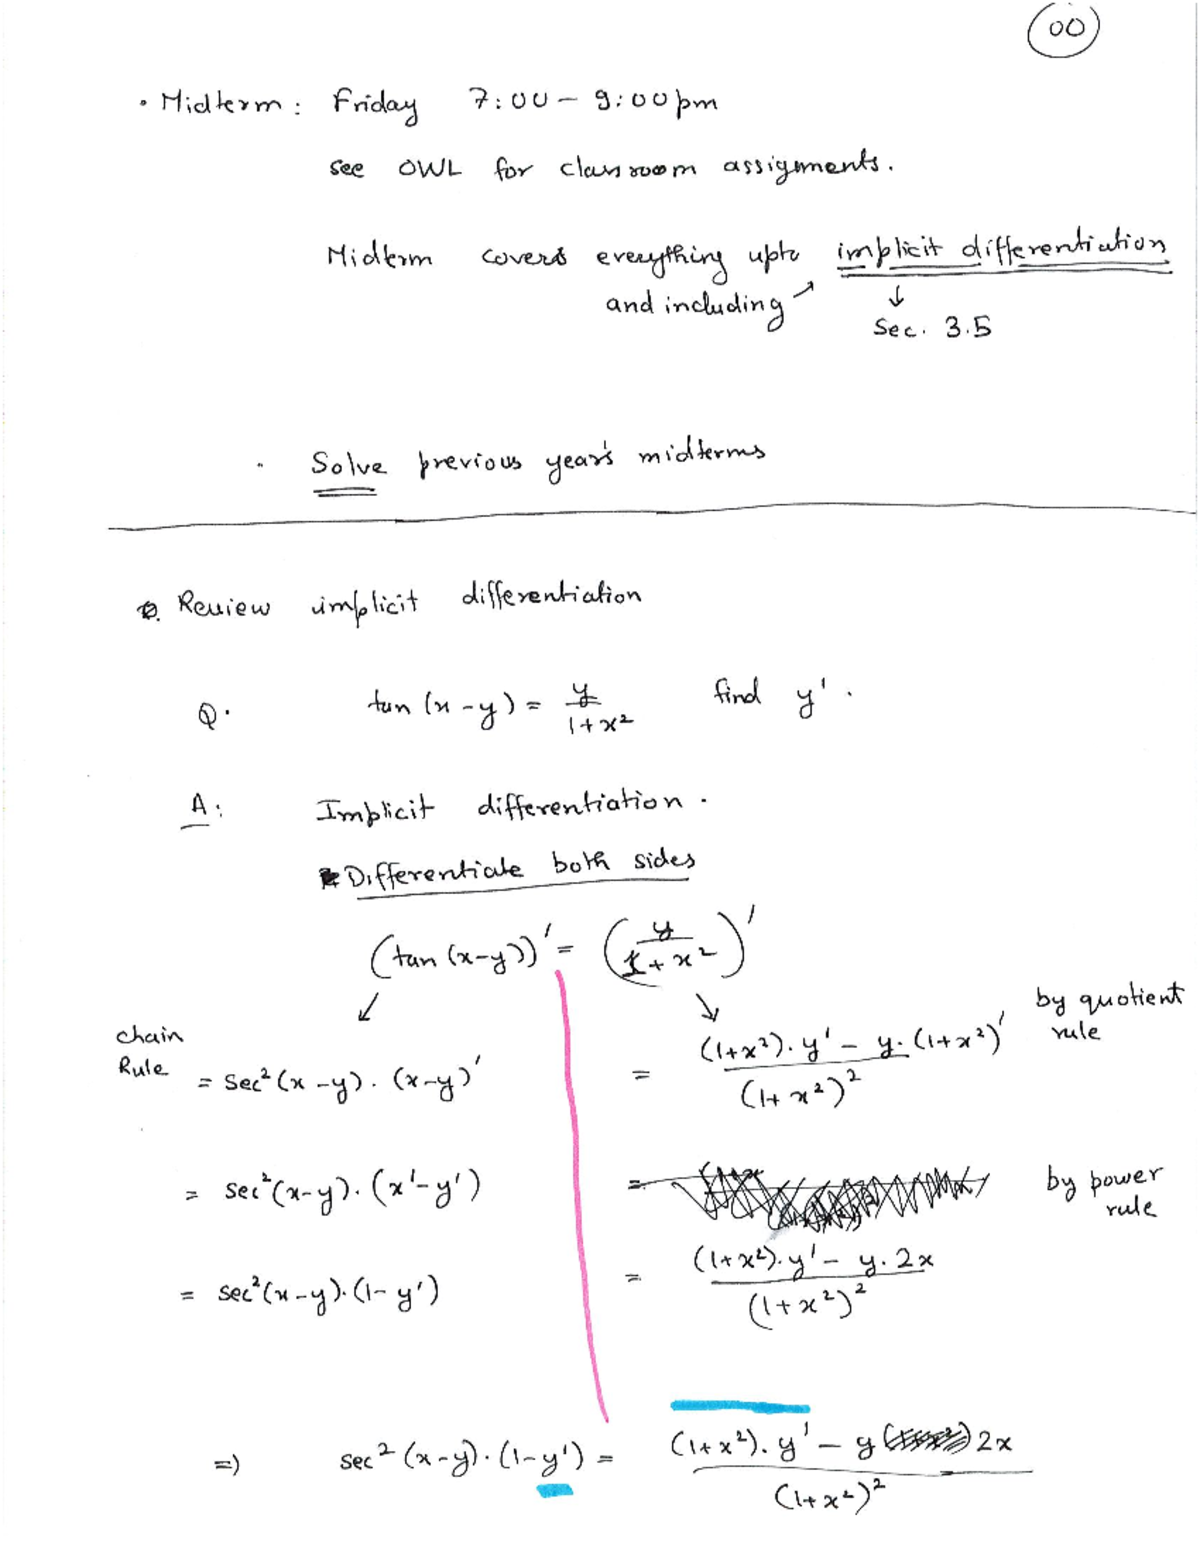 00
• Midterm: Friday 7:00 – 9:00pm
see OWL for classroom assignments.
Midterm covers everything upto implicit differentiation
and including ↗ ↓
Sec. 3.5
· Solve previous year's midterms
Review implicit differentiation
Q. tan (x - y) = y / (1 + x²) find y'.
A: Implicit differentiation.
Differentiate both sides
(tan (x-y))' = (y / (1 + x²))'
↙ ↘
chain Rule = sec² (x - y) . (x-y)'
= ((1+x²). y' - y. (1+x²)') / (1+x²)² by quotient rule
= sec² (x-y). (x' - y')
= by power rule
= sec² (x-y). (1- y')
= ((1+x²). y' - y. 2x) / (1+x²)²
=) sec² (x-y). (1-y') = ((1+x²). y' - y 2x) / (1+x²)²